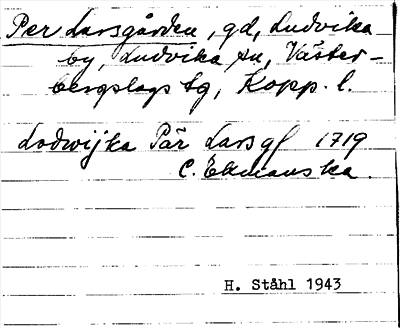 Per Larsgården, gd, Ludvika
by, Ludvika sn, Väster-
bergslags tg, Kopp. l.
Lodwijka Pär Larsgl 1719
C. Ekmanska.
H. Ståhl 1943